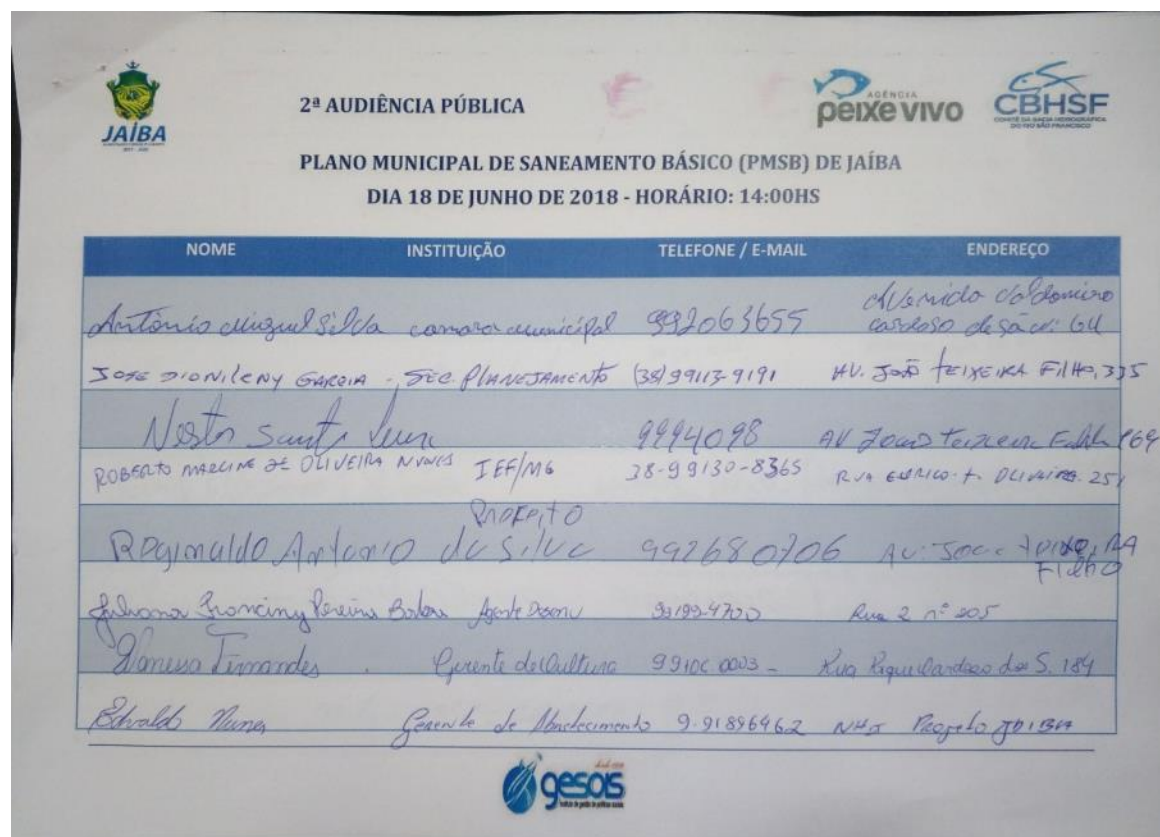 JAÍBA
2ª AUDIÊNCIA PÚBLICA
AGÊNCIA
peixe vivo
CBHSF
COMITÊ DA BACIA HIDROGRÁFICA
DO RIO SÃO FRANCISCO
PLANO MUNICIPAL DE SANEAMENTO BÁSICO (PMSB) DE JAÍBA
DIA 18 DE JUNHO DE 2018 - HORÁRIO: 14:00HS
NOME INSTITUIÇÃO TELEFONE / E-MAIL ENDEREÇO
Antônio Miguel Silva camara municipal 992063655 Avenida Valdomiro
cardoso de sá
JOSE DIONILENY GARCIA - SEC. PLANEJAMENTO (38) 99113-9191 AV. JOÃO TEIXEIRA FILHO, 335
Nestor 9994098 AV João Teixeira
ROBERTO DE OLIVEIRA NUNES IEF/MG 38-99130-8365 RUA OLIVEIRA 251
PREFEITO
Reginaldo Antonio da Silva 992680706 AV. TEIXEIRA
FILHO
Juliana Franciny Pereira Agente 99199-4700 Rua 2 nº 205
Vanessa Fernandes Gerente de Cultura 99106 0003 - Rua 184
Edvaldo Nunes Gerente de Abastecimento 9-91896962 Projeto JAIBA
gesois
instituto de gestão de políticas sociais